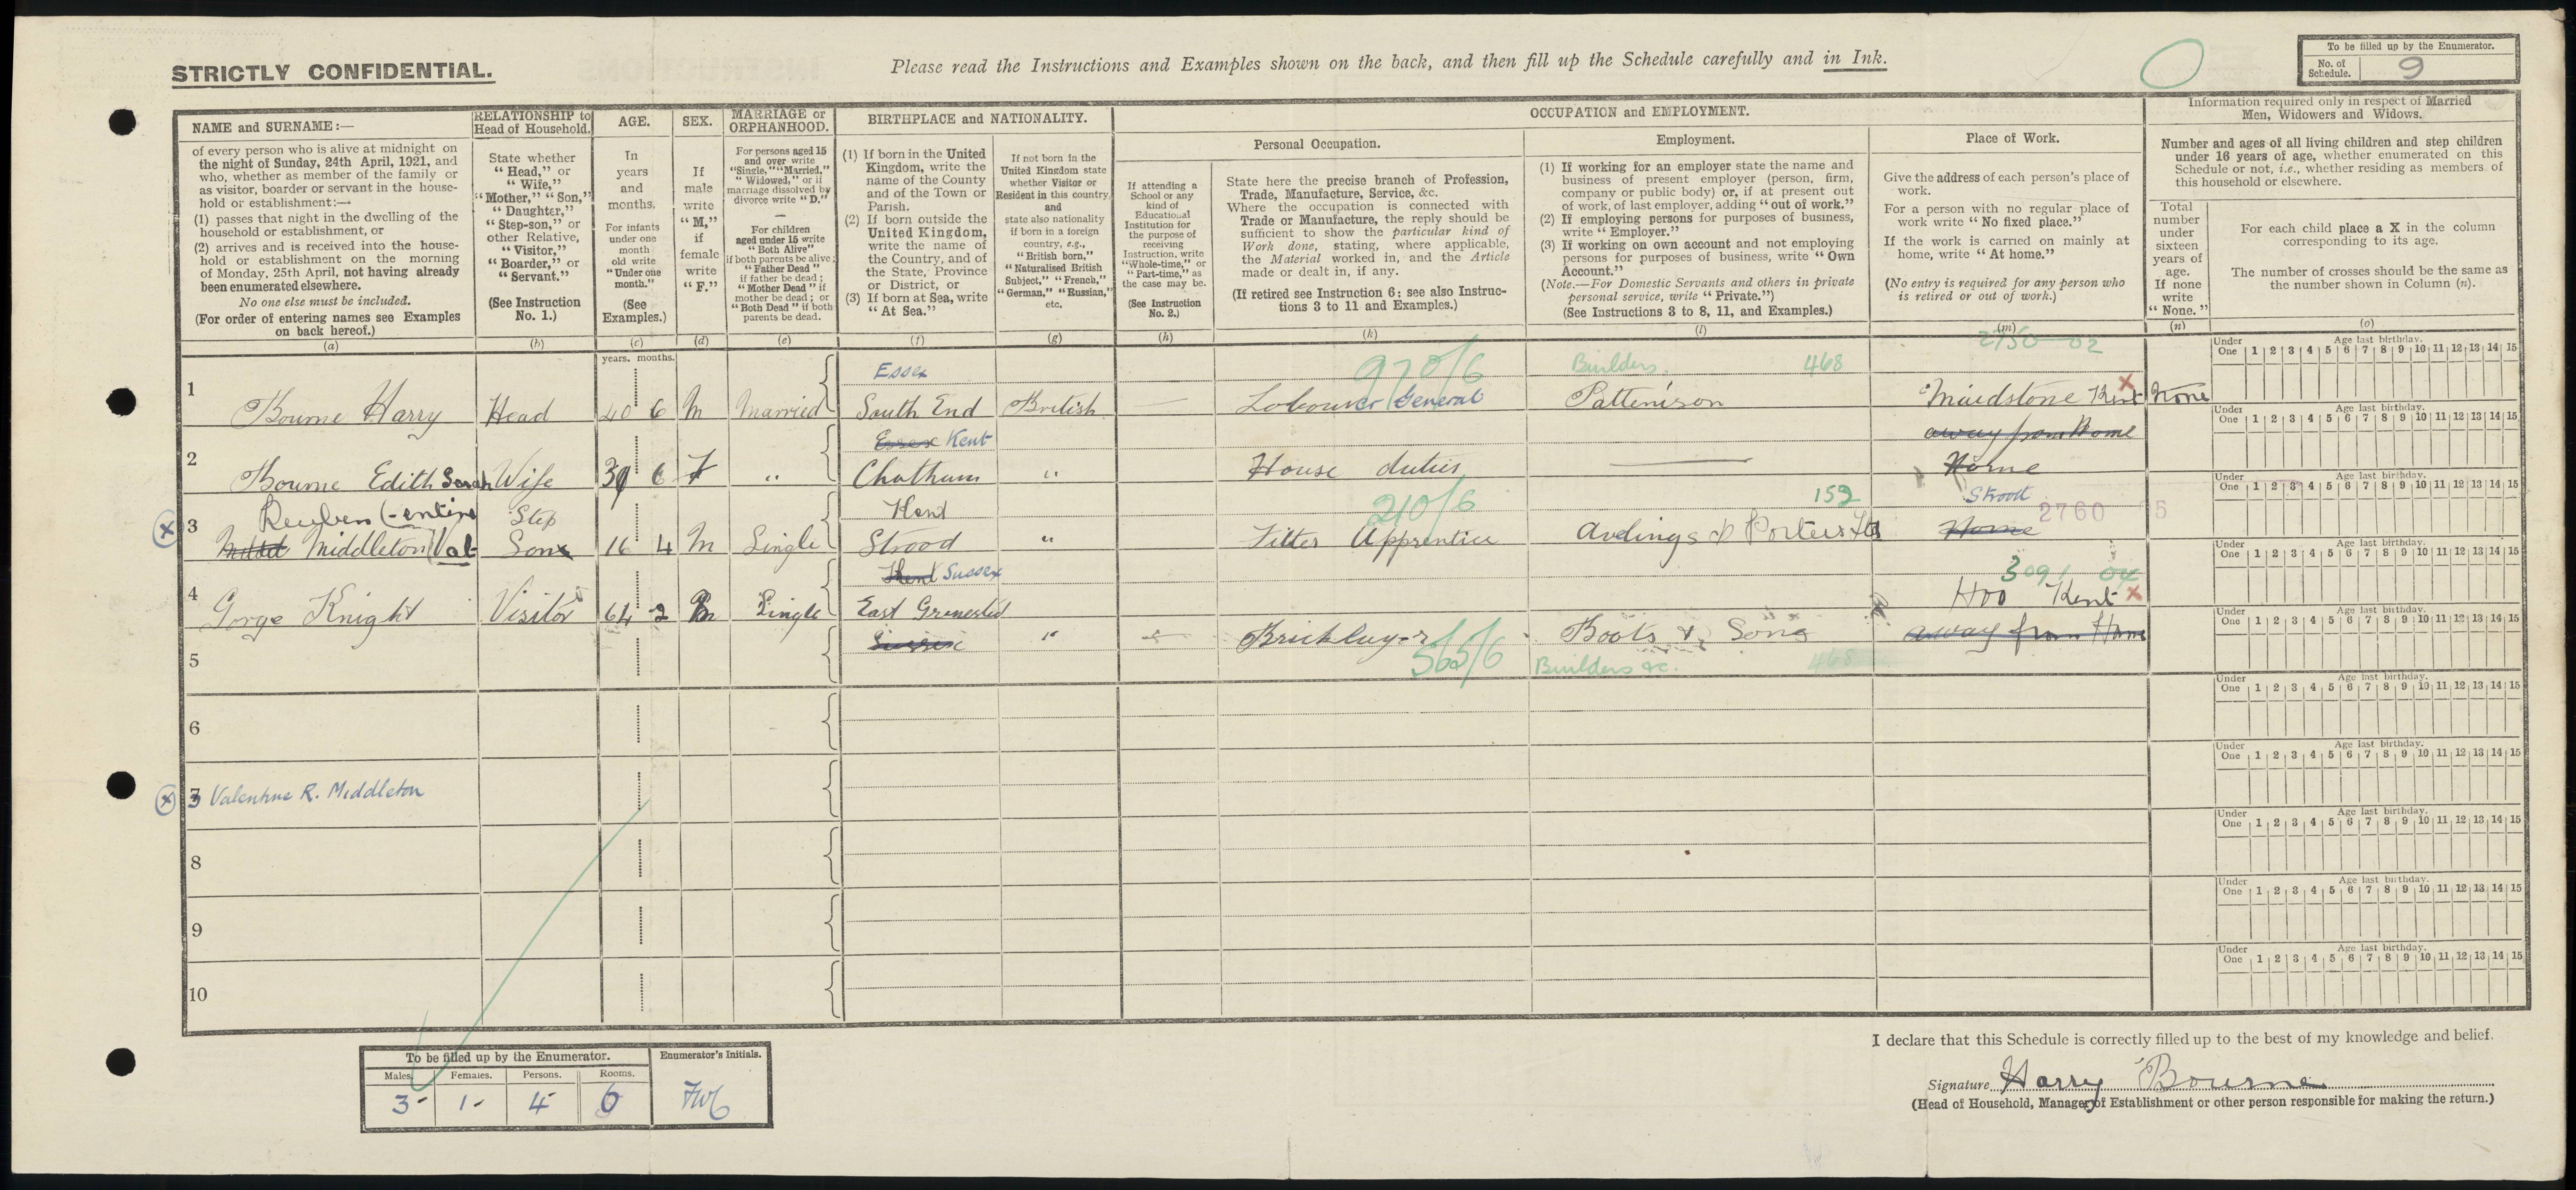 STRICTLY CONFIDENTIAL.
Please read the Instructions and Examples shown on the back, and then fill up the Schedule carefully and in Ink.
To be filled up by the Enumerator.
No. of Schedule. 9
NAME and SURNAME:—
of every person who is alive at midnight on
the night of Sunday, 24th April, 1921, and
who, whether as member of the family or
as visitor, boarder or servant in the house-
hold or establishment:—
(1) passes that night in the dwelling of the
household or establishment, or
(2) arrives and is received into the house-
hold or establishment on the morning
of Monday, 25th April, not having already
been enumerated elsewhere.
No one else must be included.
(For order of entering names see Examples
on back hereof.)
(a)
RELATIONSHIP to
Head of Household.
State whether
"Head," or
"Wife,"
"Mother," "Son,"
"Daughter,"
"Step-son," or
other Relative,
"Visitor,"
"Boarder," or
"Servant."
(See Instruction
No. 1.)
(b)
AGE.
In
years
and
months.
For infants
under one
month
old write
"Under one
month."
(See
Examples.)
(c)
SEX.
If
male
write
"M,"
if
female
write
"F."
(d)
MARRIAGE or
ORPHANHOOD.
For persons aged 15
and over write
"Single," "Married,"
"Widowed," or if
marriage dissolved by
divorce write "D."
—
For children
aged under 15 write
"Both Alive"
if both parents be alive;
"Father Dead"
if father be dead;
"Mother Dead" if
mother be dead; or
"Both Dead" if both
parents be dead.
(e)
BIRTHPLACE and NATIONALITY.
(1) If born in the United
Kingdom, write the
name of the County
and of the Town or
Parish.
(2) If born outside the
United Kingdom,
write the name of
the Country, and of
the State, Province
or District, or
(3) If born at Sea, write
"At Sea."
(f)
If not born in the
United Kingdom state
whether Visitor or
Resident in this country,
and
state also nationality
if born in a foreign
country, e.g.,
"British born,"
"Naturalised British
Subject," "French,"
"German," "Russian,"
etc.
(g)
OCCUPATION and EMPLOYMENT.
Personal Occupation.
If attending a
School or any
kind of
Educational
Institution for
the purpose of
receiving
Instruction, write
"Whole-time," or
"Part-time," as
the case may be.
(See Instruction
No. 2.)
(h)
State here the precise branch of Profession,
Trade, Manufacture, Service, &c.
Where the occupation is connected with
Trade or Manufacture, the reply should be
sufficient to show the particular kind of
Work done, stating, where applicable,
the Material worked in, and the Article
made or dealt in, if any.
(If retired see Instruction 6: see also Instruc-
tions 3 to 11 and Examples.)
(k)
Employment.
(1) If working for an employer state the name and
business of present employer (person, firm,
company or public body) or, if at present out
of work, of last employer, adding "out of work."
(2) If employing persons for purposes of business,
write "Employer."
(3) If working on own account and not employing
persons for purposes of business, write "Own
Account."
(Note.—For Domestic Servants and others in private
personal service, write "Private.")
(See Instructions 3 to 8, 11, and Examples.)
(l)
Place of Work.
Give the address of each person's place of
work.
For a person with no regular place of
work write "No fixed place."
If the work is carried on mainly at
home, write "At home."
(No entry is required for any person who
is retired or out of work.)
(m)
Information required only in respect of Married
Men, Widowers and Widows.
Number and ages of all living children and step children
under 16 years of age, whether enumerated on this
Schedule or not, i.e., whether residing as members of
this household or elsewhere.
Total
number
under
sixteen
years of
age.
If none
write
"None."
(n)
For each child place a X in the column
corresponding to its age.
The number of crosses should be the same as
the number shown in Column (n).
(o)
years. months.
Under One Age last birthday. 1 2 3 4 5 6 7 8 9 10 11 12 13 14 15
Essex 970/6 Builders. 468 2750 02
1 Bourne Harry Head 40 6 M Married South End British Labourer General Pattenison Maidstone Kent None
Under One Age last birthday. 1 2 3 4 5 6 7 8 9 10 11 12 13 14 15
Essex Kent away from Home
2 Bourne Edith Sarah Wife 39 6 F " Chatham " House duties Home
Under One Age last birthday. 1 2 3 4 5 6 7 8 9 10 11 12 13 14 15
Reuben (-entine Step Kent 210/6 159 Strood 2760
3 Middleton (Val- Son 16 4 M Single Strood " Fitter Apprentice Avelings & Porters Ltd Home
Under One Age last birthday. 1 2 3 4 5 6 7 8 9 10 11 12 13 14 15
Kent Sussex 3091 04
4 Gorge Knight Visitor 64 2 M Single East Grinested Hoo Kent
Under One Age last birthday. 1 2 3 4 5 6 7 8 9 10 11 12 13 14 15
Sussex " Bricklayer Boots & Sons away from Home
5 565/6 Builders &c. 468
Under One Age last birthday. 1 2 3 4 5 6 7 8 9 10 11 12 13 14 15
6
Under One Age last birthday. 1 2 3 4 5 6 7 8 9 10 11 12 13 14 15
7
3 Valentine R. Middleton
Under One Age last birthday. 1 2 3 4 5 6 7 8 9 10 11 12 13 14 15
8
Under One Age last birthday. 1 2 3 4 5 6 7 8 9 10 11 12 13 14 15
9
Under One Age last birthday. 1 2 3 4 5 6 7 8 9 10 11 12 13 14 15
10
To be filled up by the Enumerator.
Enumerator's Initials.
Males. Females. Persons. Rooms.
3- 1- 4- 6
I declare that this Schedule is correctly filled up to the best of my knowledge and belief.
Signature Harry Bourne
(Head of Household, Manager of Establishment or other person responsible for making the return.)